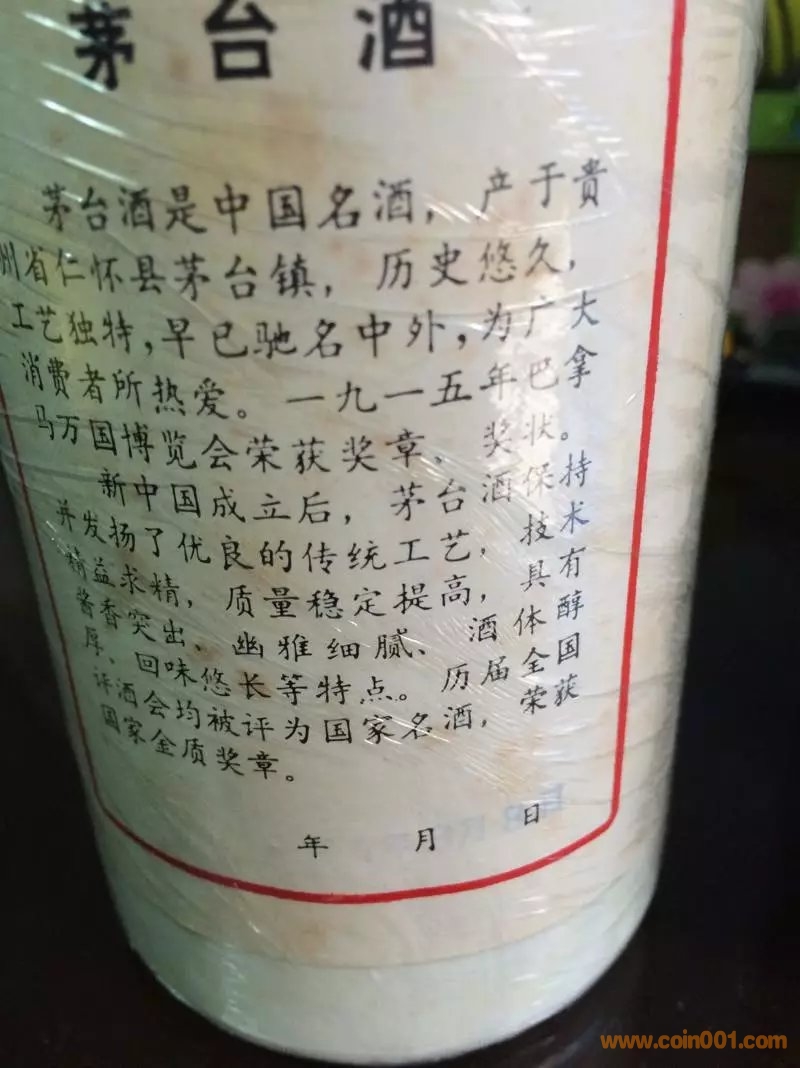 茅台酒
茅台酒是中国名酒，产于贵
州省仁怀县茅台镇，历史悠久，
工艺独特，早已驰名中外，为广大
消费者所热爱。一九一五年巴拿
马万国博览会荣获奖章、奖状。
新中国成立后，茅台酒保持
并发扬了优良的传统工艺，技术
精益求精，质量稳定提高，具有
酱香突出、幽雅细腻、酒体醇
厚、回味悠长等特点。历届全国
评酒会均被评为国家名酒，荣获
国家金质奖章。
年 月 日
www.coin001.com